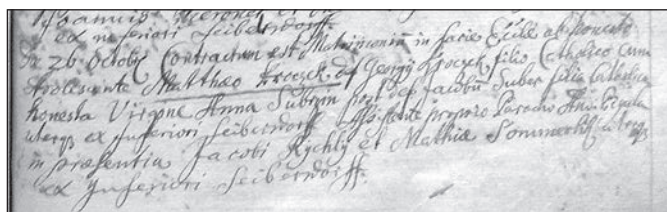 Joannis et
ex inferiori Seibersdorff
Die 26 Octobris Contractum est Matrimonium in facie Eccle ab honesto
Adolescente Matthæo Kroczek def Georgij Kroczek filio, Catholico cum
honesta Virgine Anna Subrin post def Jacobum Suber filia Catholica
uterq ex Inferiori Seibersdorff assistente proprio Parocho
in præsentia Jacobi Rychly et Mathiæ Sommerlik uterq
ex Inferiori Seibersdorff.